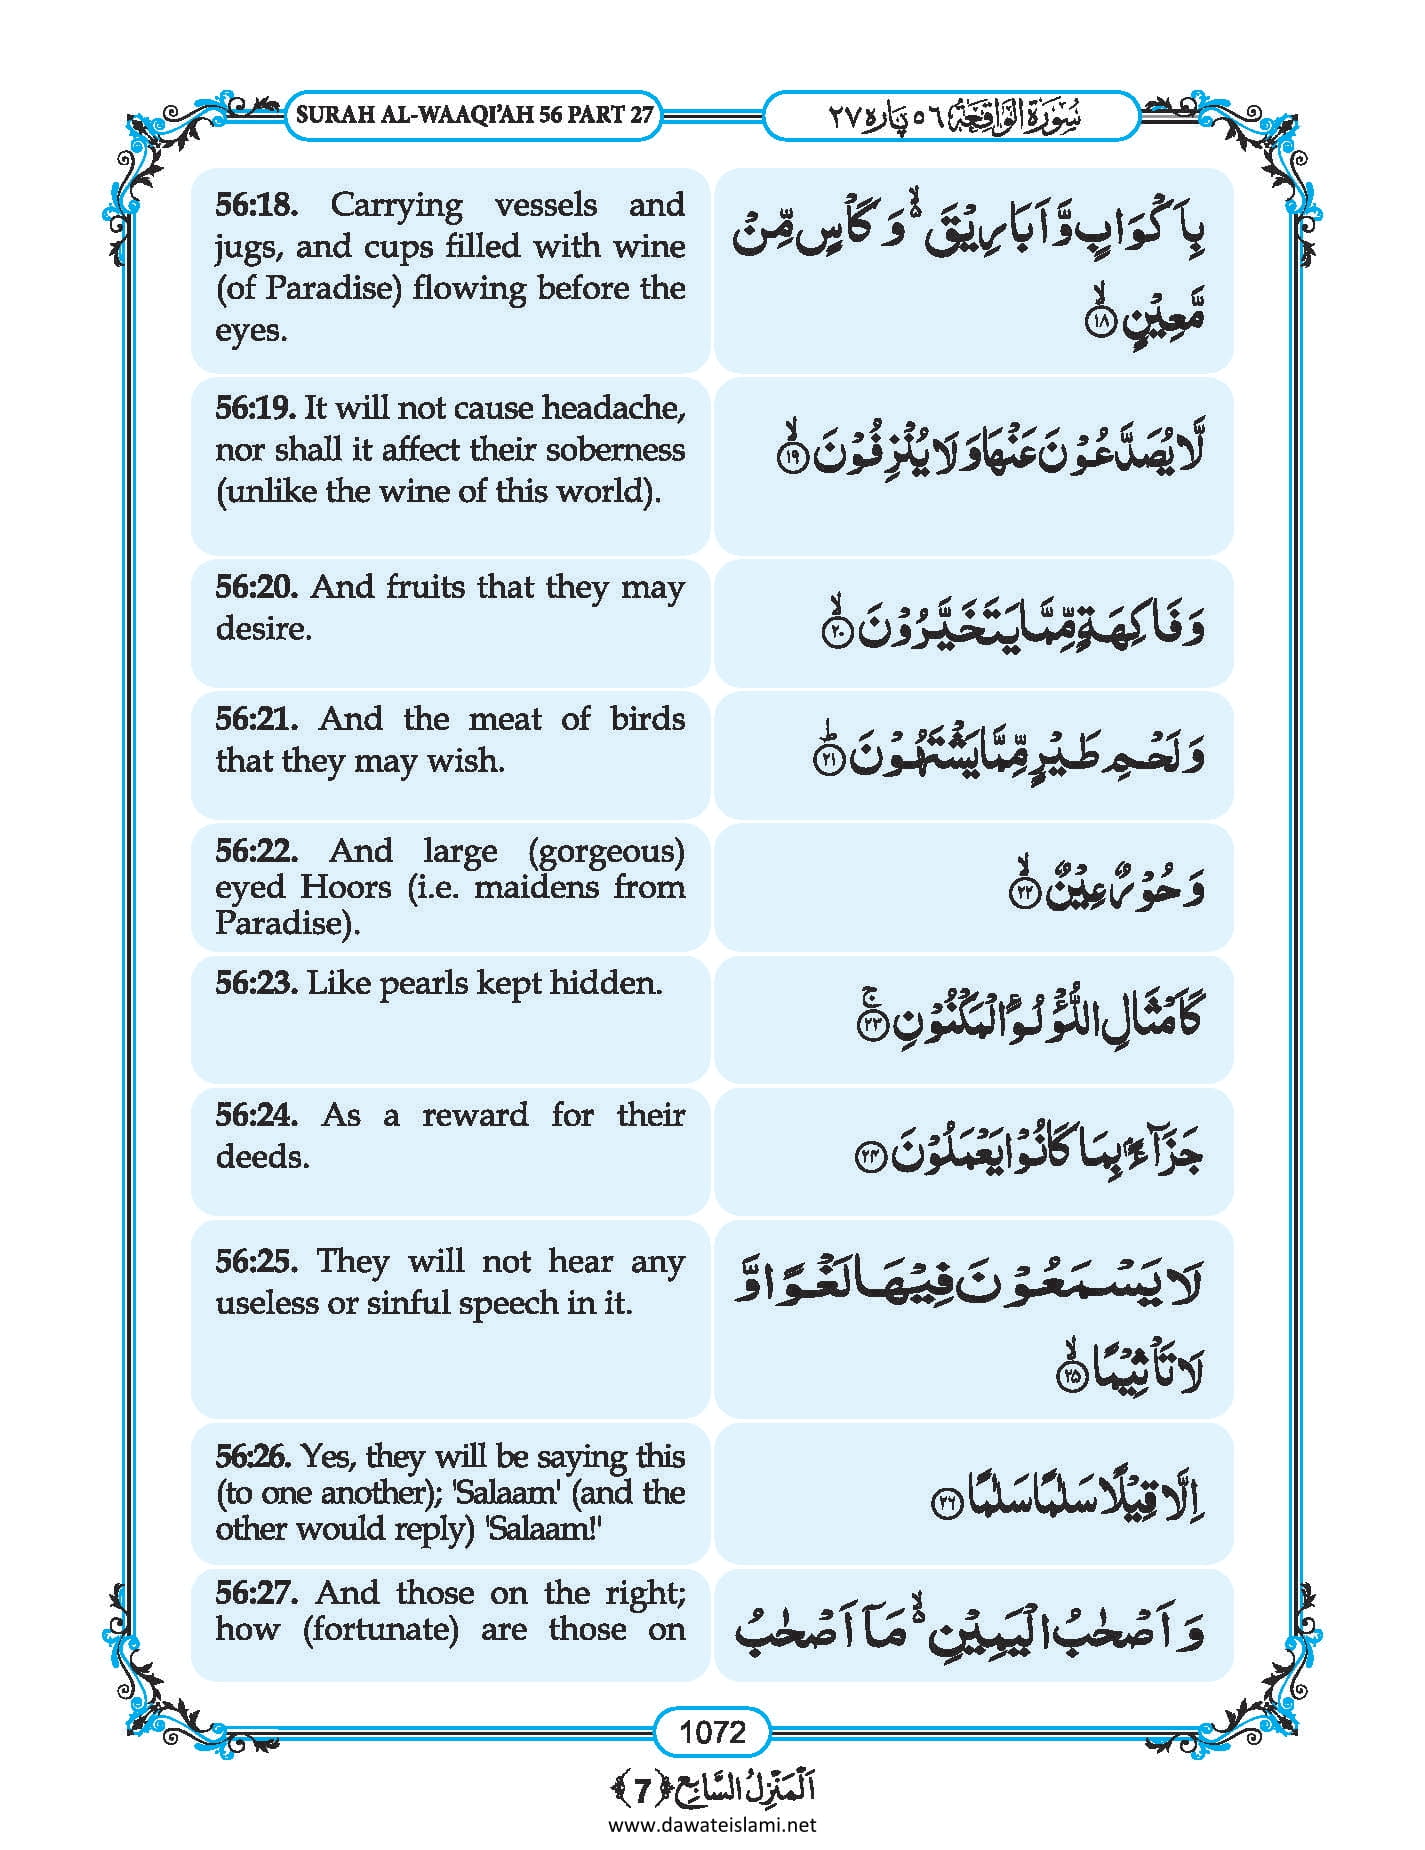 SURAH AL-WAAQI'AH 56 PART 27
سُوۡرَةُ الۡوَاقِعَةُ ٥٦ پارہ ٢٧
56:18. Carrying vessels and
jugs, and cups filled with wine
(of Paradise) flowing before the
eyes.
بِاَكۡوَابٍ وَّ اَبَارِيۡقَ ۙ۬ وَ كَاۡسٍ مِّنۡ
مَّعِيۡنٍ ۙ﴿۱۸﴾
56:19. It will not cause headache,
nor shall it affect their soberness
(unlike the wine of this world).
لَّا يُصَدَّعُوۡنَ عَنۡهَا وَ لَا يُنۡزِفُوۡنَ ۙ﴿۱۹﴾
56:20. And fruits that they may
desire.
وَ فَاكِهَةٍ مِّمَّا يَتَخَيَّرُوۡنَ ۙ﴿۲۰﴾
56:21. And the meat of birds
that they may wish.
وَ لَحۡمِ طَيۡرٍ مِّمَّا يَشۡتَهُوۡنَ ؕ﴿۲۱﴾
56:22. And large (gorgeous)
eyed Hoors (i.e. maidens from
Paradise).
وَ حُوۡرٌ عِيۡنٌ ۙ﴿۲۲﴾
56:23. Like pearls kept hidden.
كَاَمۡثَالِ اللُّؤۡلُوَٴ الۡمَكۡنُوۡنِ ۚ﴿۲۳﴾
56:24. As a reward for their
deeds.
جَزَآءًۢ بِمَا كَانُوۡا يَعۡمَلُوۡنَ ﴿۲۴﴾
56:25. They will not hear any
useless or sinful speech in it.
لَا يَسۡمَعُوۡنَ فِيۡهَا لَغۡوًا وَّ
لَا تَاۡثِيۡمًا ۙ﴿۲۵﴾
56:26. Yes, they will be saying this
(to one another); 'Salaam' (and the
other would reply) 'Salaam!'
اِلَّا قِيۡلًا سَلٰمًا سَلٰمًا ﴿۲۶﴾
56:27. And those on the right;
how (fortunate) are those on
وَ اَصۡحٰبُ الۡيَمِيۡنِ ۙ۬ مَاۤ اَصۡحٰبُ
1072
اَلۡمَنۡزِلُ السَّابِع ﴿7﴾
www.dawateislami.net